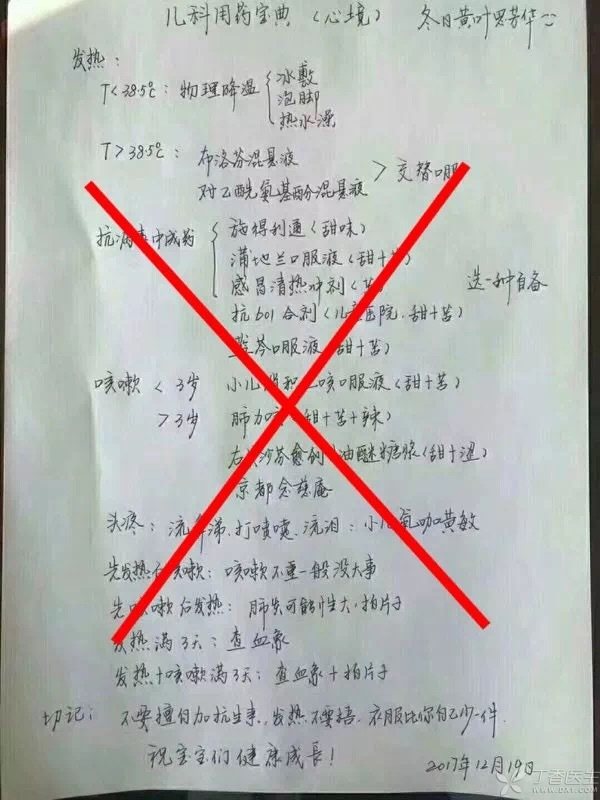 儿科用药宝典（心境） 冬日黄叶
发热：
T<38.5℃：物理降温 冰敷
泡脚
热水澡
T>38.5℃：布洛芬混悬液
对乙酰氨基酚混悬液 > 交替口服
抗病毒中成药 施得利通（甜味）
蒲地兰口服液（甜+苦）
感冒清热冲剂（苦） 选一种自备
抗601合剂（儿童医院.甜+苦）
蓝芩口服液（甜+苦）
咳嗽 < 3岁 小儿 咳口服液（甜+苦）
> 3岁 肺力咳（甜+苦+辣）
右美沙芬愈创 油醚糖浆（甜+涩）
京都念慈庵
头疼：流鼻涕.打喷嚏.流泪：小儿氨咖黄敏
先发热后咳嗽：咳嗽不重一般没大事
先咳嗽后发热：肺炎可能性大.拍片子
发热满3天：查血象
发热+咳嗽满3天：查血象+拍片子
切记：不要擅自加抗生素.发热不要捂.衣服比你自己少一件.
祝宝宝们健康成長！
2017年12月19日
丁香医生
WWW.DXY.COM